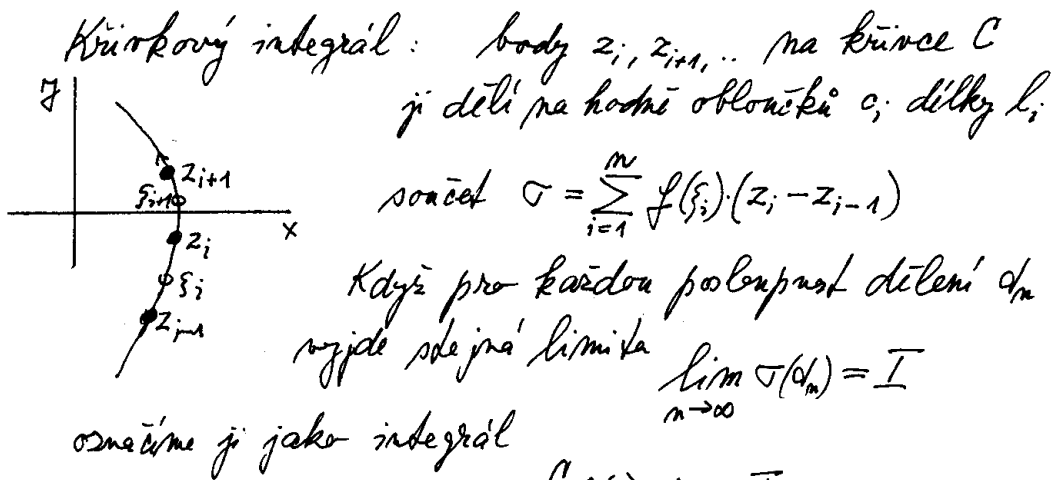 Křivkový integrál: body z_i, z_{i+1}, .. na křivce C
ji dělí na hodně obloučků c_i délky l_i
y
z_{i+1}
ξ_{i+1}
x
z_i
ξ_i
z_{i-1}
součet σ = \sum_{i=1}^{n} f(ξ_i)·(z_i − z_{i−1})
Když pro každou posloupnost dělení d_n
vyjde stejná limita lim_{n→∞} σ(d_n) = I
označíme ji jako integrál